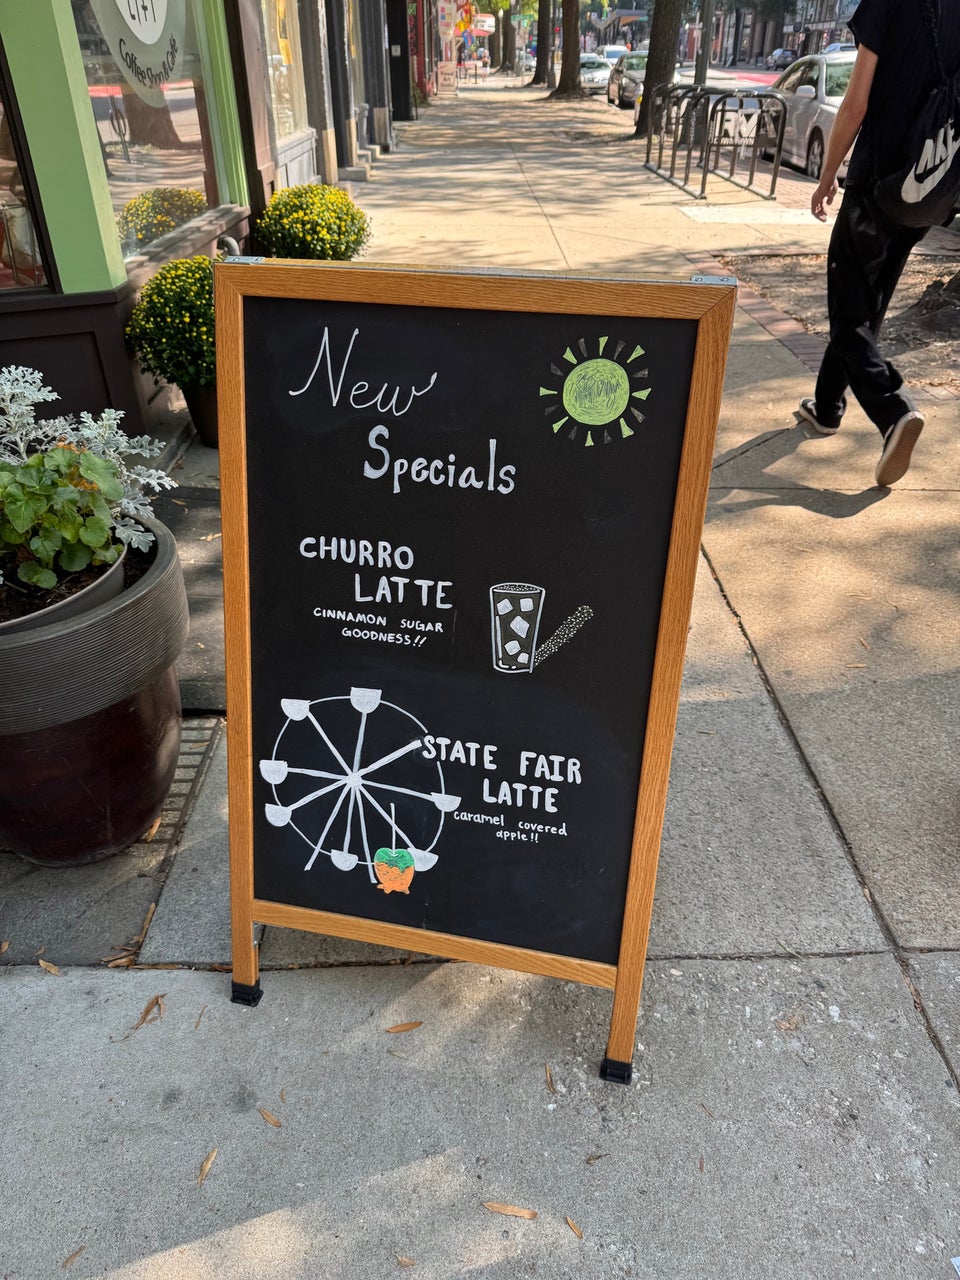 LIFT
Coffee Shop & Café
New
Specials
CHURRO
LATTE
CINNAMON SUGAR
GOODNESS!!
STATE FAIR
LATTE
caramel covered
apple!!